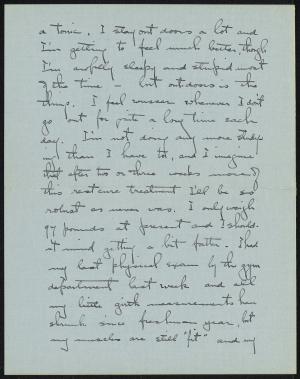 a tonic. I stay out doors a lot and
I'm getting to feel much better, though
I'm awfully sleepy and stupid most
of the time - but outdoors is the
thing. I feel rousier whenever I don't
go out for quite a long time each
day. I'm not doing any more study-
ing than I have to, and I imagine
that after two or three weeks more of
this rest cure treatment I'll be so
robust as never was. I only weigh
97 pounds at present and I should-
n't mind getting a bit fatter. I had
my last physical exam by the gym
department last week and all
my little girth measurements have
shrunk since freshman year, but
my muscles are still "fit" and my